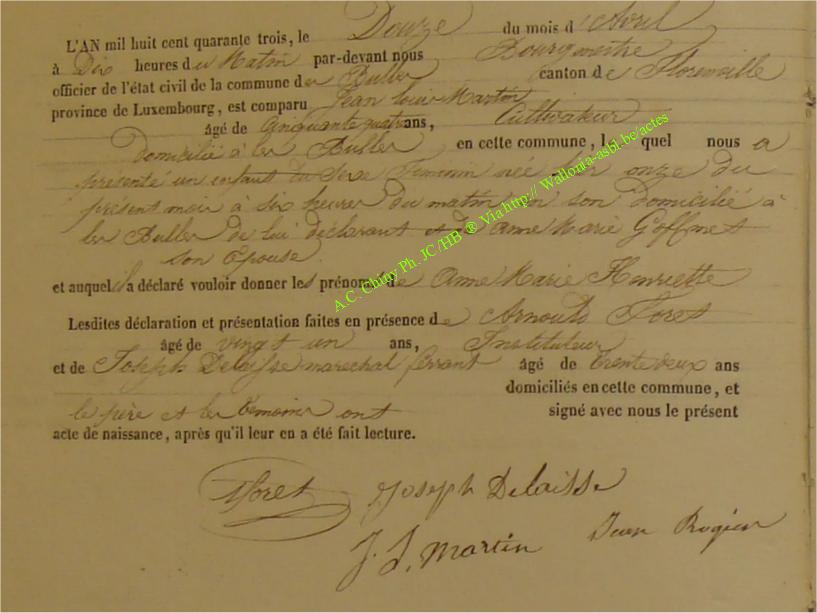 L'AN mil huit cent quarante trois, le Douze du mois d'Avril
à Dix heures du Matin par-devant nous Bourgmestre
officier de l'état civil de la commune des Bulles canton de Florenville
province de Luxembourg, est comparu Jean Louis Martin
âgé de cinquante quatre ans, Cultivateur
Domicilié à les Bulles en cette commune, lequel nous a
présenté un enfant du sexe Feminin née hier onze du
présent mois à six heures du matin en son domicilié à
les Bulles de lui déclarant et de Anne Marie Goffinet
son épouse
et auquel il a déclaré vouloir donner les prénoms de Anne Marie Henriette
Lesdites déclaration et présentation faites en présence de Arnould Foret
âgé de vingt un ans, Instituteur
et de Joseph Delaisse marechal ferrant âgé de trente deux ans
domiciliés en cette commune, et
le père et les témoins ont signé avec nous le présent
acte de naissance, après qu'il leur en a été fait lecture.
A.C. Chiny Ph. JC/HB ® Via http:// Wallonia-asbl.be/actes
Foret Joseph Delaisse
J. L. Martin